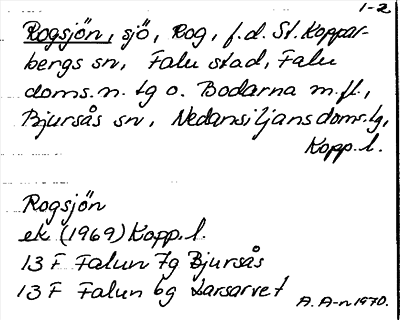 1-2
Rogsjön, sjö, Rog, f.d. St. Koppar-
bergs sn, Falu stad, Falu
doms.n. tg o. Bodarna m.fl.,
Bjursås sn, Nedansiljans doms.tg,
Kopp.l.
Rogsjön
ek (1969) Kopp.l.
13 F Falun 7g Bjursås
13 F Falun 6g Larsarvet
A. A-n 1970.